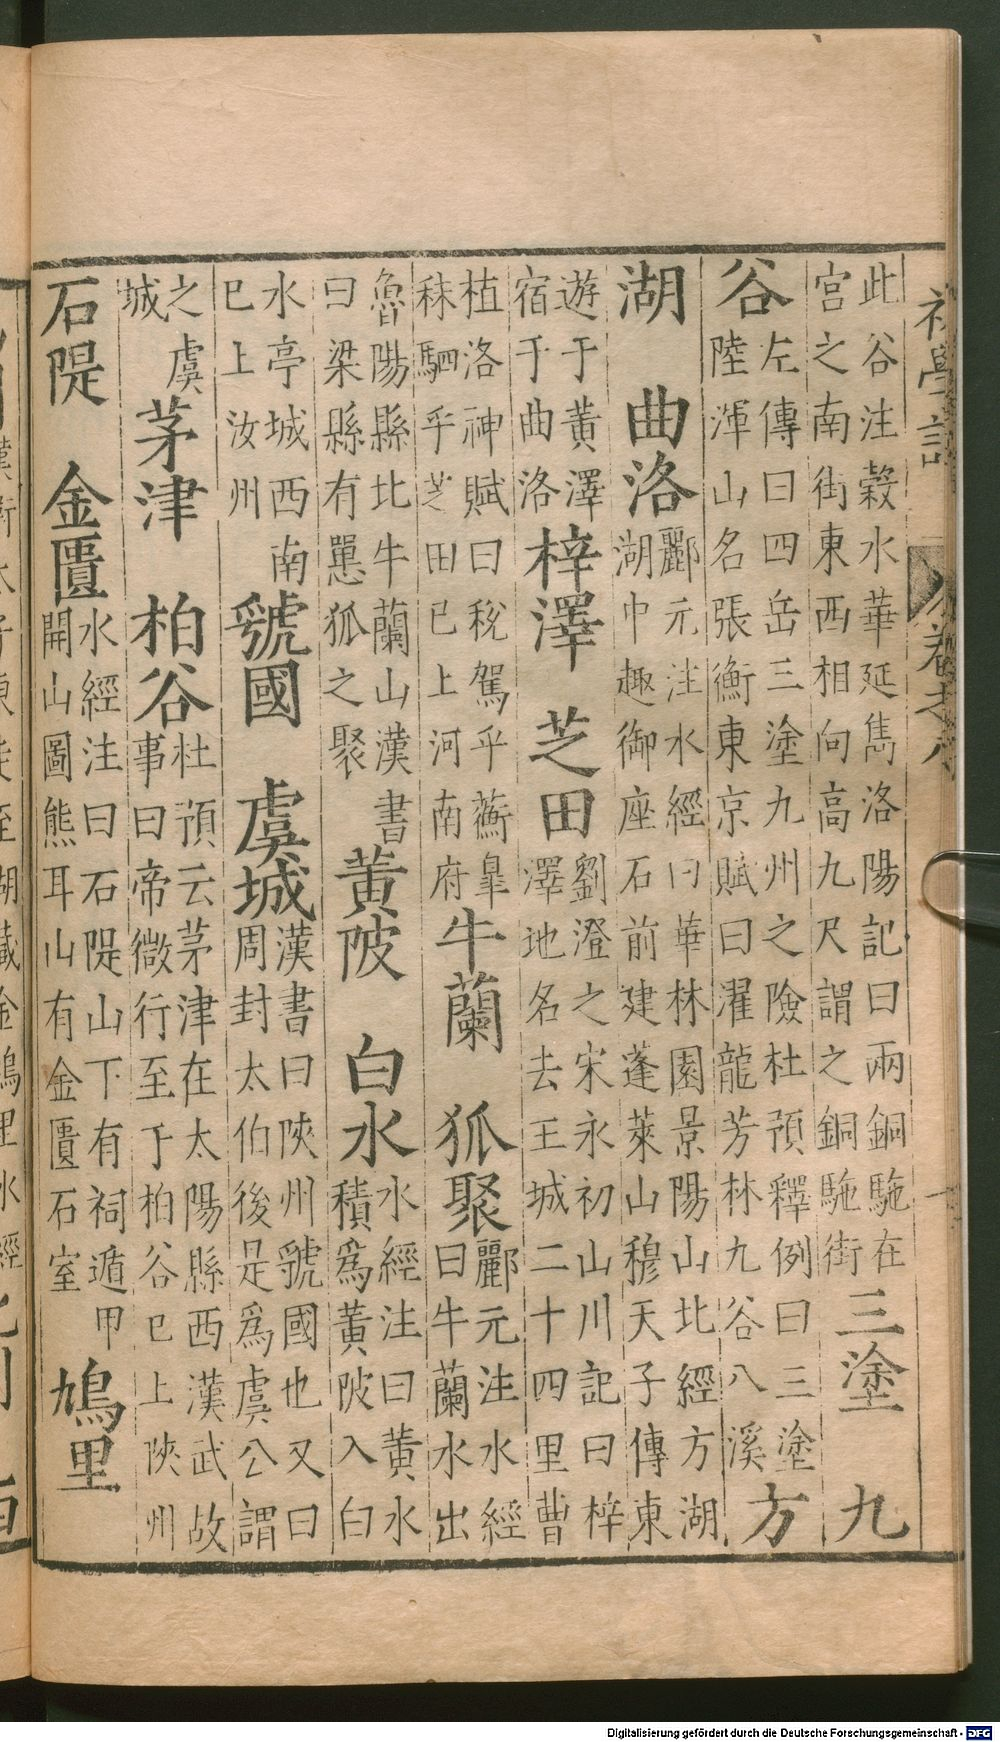 初學記
卷之八
此谷注穀水華延雋洛陽記曰兩銅駞在
宮之南街東西相向高九尺謂之銅駞街
三塗 九
谷
左傳曰四岳三塗九州之險杜預釋例曰三塗
陸渾山名張衡東京賦曰濯龍芳林九谷八溪
方
湖 曲洛
酈元注水經曰華林園景陽山北經方湖
湖中趣御座石前建蓬萊山穆天子傳東
遊于黃澤
宿于曲洛
梓澤 芝田
劉澄之宋永初山川記曰梓
澤地名去王城二十四里曹
植洛神賦曰稅駕乎蘅臯
秣駟乎芝田已上河南府
牛蘭 狐聚
酈元注水經
曰牛蘭水出
魯陽縣北牛蘭山漢書
曰梁縣有㦛狐之聚
黃陂 白水
水經注曰黃水
積爲黃陂入白
水亭城西南
巳上汝州
虢國 虞城
漢書曰陝州虢國也又曰
周封太伯後是爲虞公謂
之虞
城
茅津 柏谷
杜預云茅津在太陽縣西漢武故
事曰帝微行至于柏谷巳上陝州
石隄 金匱
水經注曰石隄山下有祠遁甲
開山圖熊耳山有金匱石室
鳩里
Digitalisierung gefördert durch die Deutsche Forschungsgemeinschaft - DFG